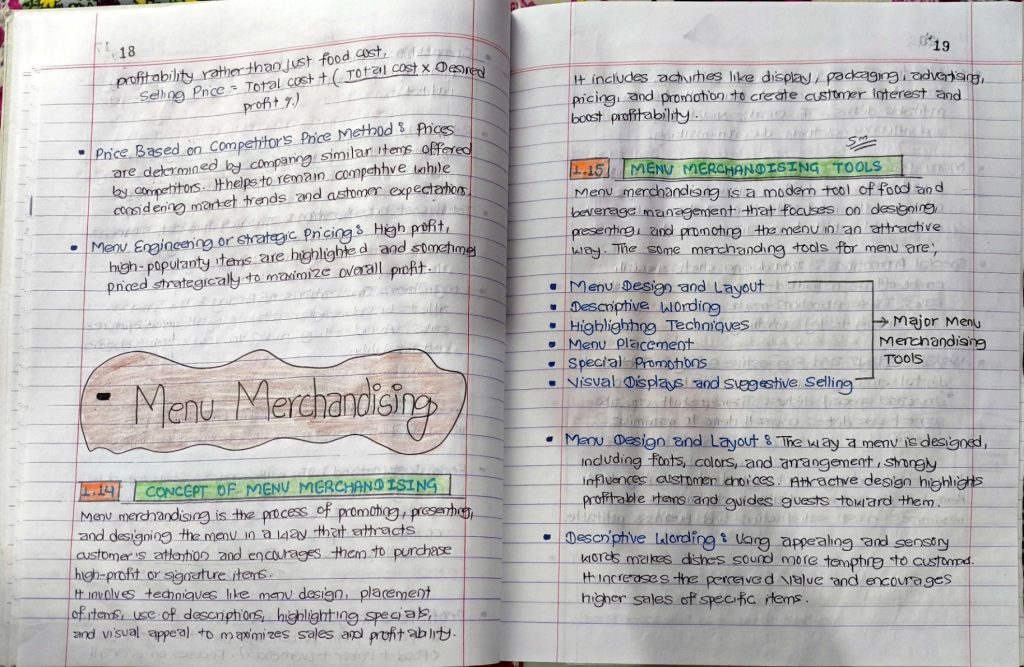 18
profitability rather than just food cost.
Selling Price = Total cost + (Total cost × Desired
profit %)
• Price Based on Competitor's Price Method : Prices
are determined by comparing similar items offered
by competitors. It helps to remain competitive while
considering market trends and customer expectations.
• Menu Engineering or Strategic Pricing : High profit,
high-popularity items are highlighted and sometimes
priced strategically to maximize overall profit.
- Menu Merchandising
1.14 CONCEPT OF MENU MERCHANDISING
Menu merchandising is the process of promoting, presenting,
and designing the menu in a way that attracts
customer's attention and encourages them to purchase
high-profit or signature items.
It involves techniques like menu design, placement
of items, use of descriptions, highlighting specials,
and visual appeal to maximizes sales and profitability.
19
It includes activities like display, packaging, advertising,
pricing, and promotion to create customer interest and
boost profitability.
5m
1.15 MENU MERCHANDISING TOOLS
Menu merchandising is a modern tool of food and
beverage management that focuses on designing,
presenting, and promoting the menu in an attractive
way. The some merchanding tools for menu are;
• Menu Design and Layout
• Descriptive Wording
• Highlighting Techniques
• Menu Placement
• Special Promotions
• Visual Displays and Suggestive Selling
→ Major Menu
Merchandising
TOOLS
• Menu Design and Layout : The way a menu is designed,
including fonts, colors, and arrangement, strongly
influences customer choices. Attractive design highlights
profitable items and guides guests toward them.
• Descriptive Wording : Using appealing and sensory
words makes dishes sound more tempting to customers.
It increases the perceived value and encourages
higher sales of specific items.